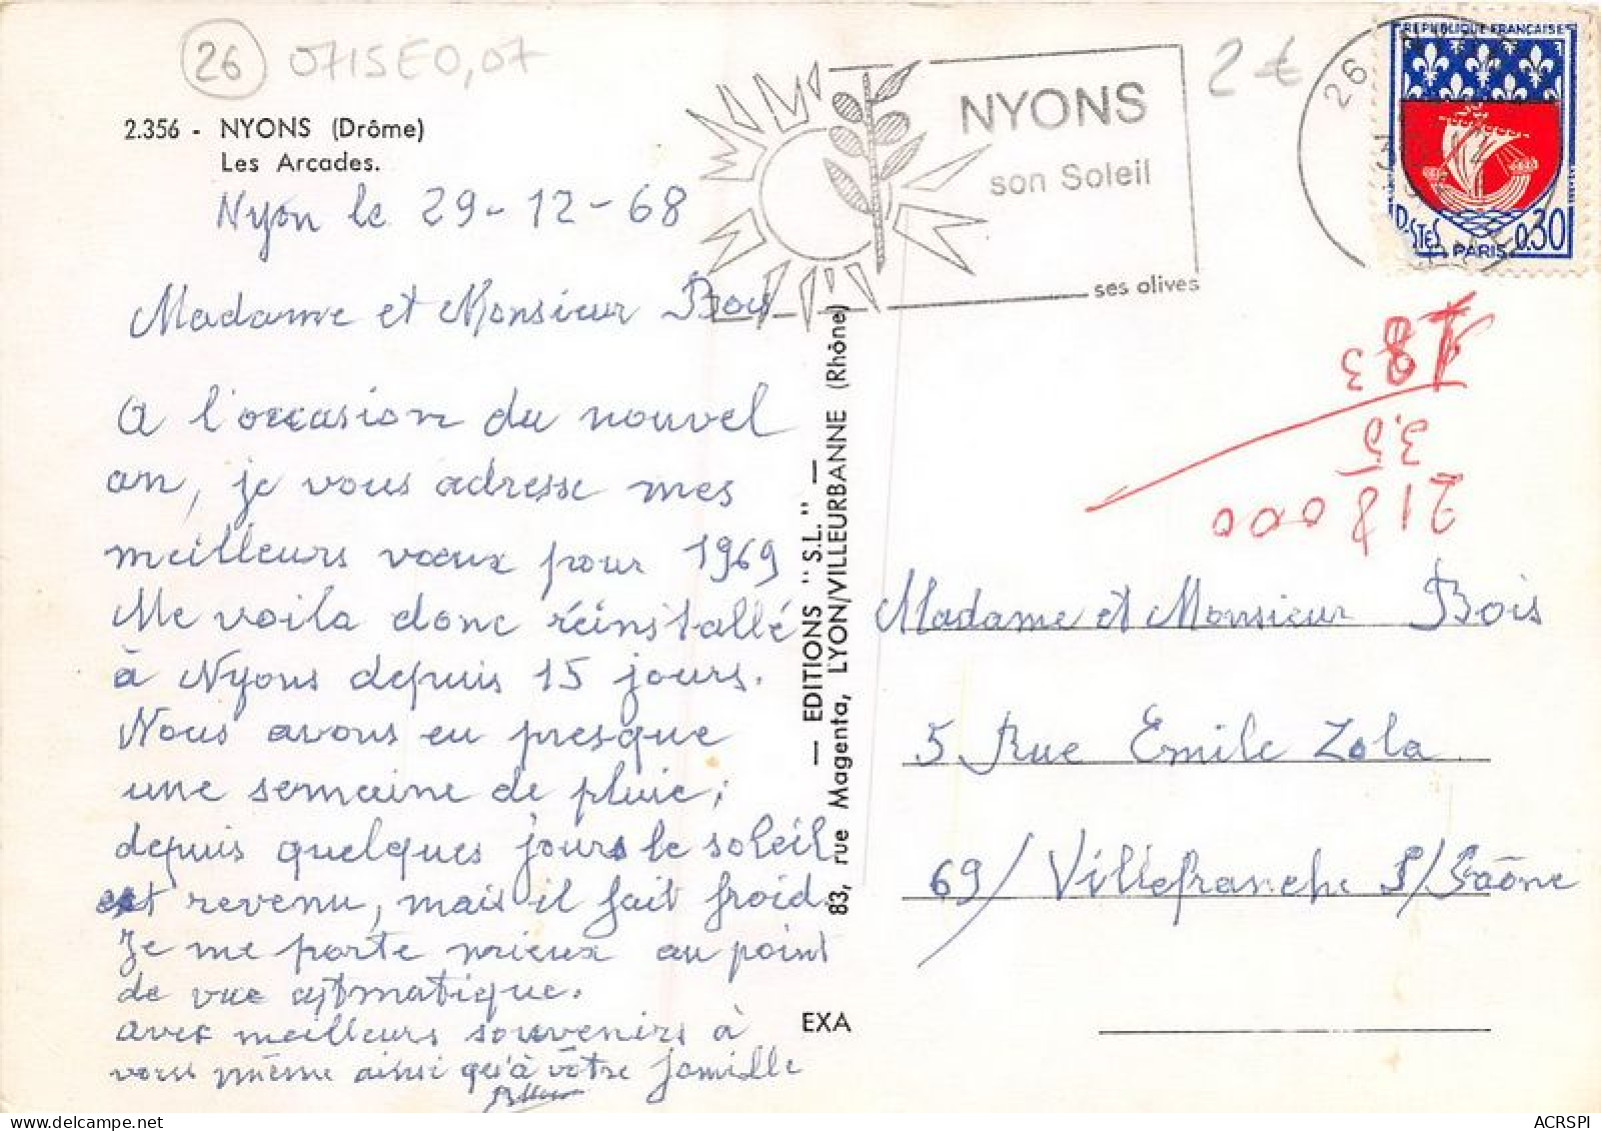 26 0715E0,07
2 €
2.356 - NYONS (Drôme)
Les Arcades.
NYONS
son Soleil
ses olives
26
REPUBLIQUE FRANÇAISE
POSTES
PARIS
0.30
Nyon le 29-12-68
Madame et Monsieur Bois
A l'occasion du nouvel
an, je vous adresse mes
meilleurs vœux pour 1969
Me voila donc réinstallé
à Nyons depuis 15 jours.
Nous avons eu presque
une semaine de pluie;
depuis quelques jours le soleil
est revenu, mais il fait froid.
Je me porte mieux au point
de vue astmatique.
avec meilleurs souvenirs à
vous même ainsi qu'à vôtre famille
— EDITIONS "S.L." —
83, rue Magenta, LYON/VILLEURBANNE (Rhône)
EXA
218 000
35
183
Madame et Monsieur Bois
5 Rue Emile Zola
69/ Villefranche S/Saône
ACRSPI